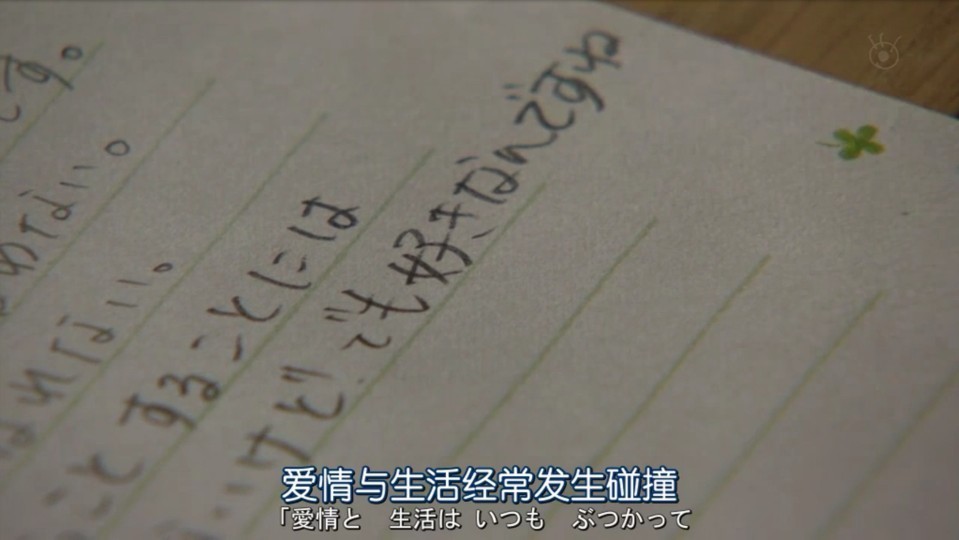 です。
めない。
れない。
ことすることには
けど でも好きなんですね
爱情与生活经常发生碰撞
「愛情と　生活は いつも　ぶつかって